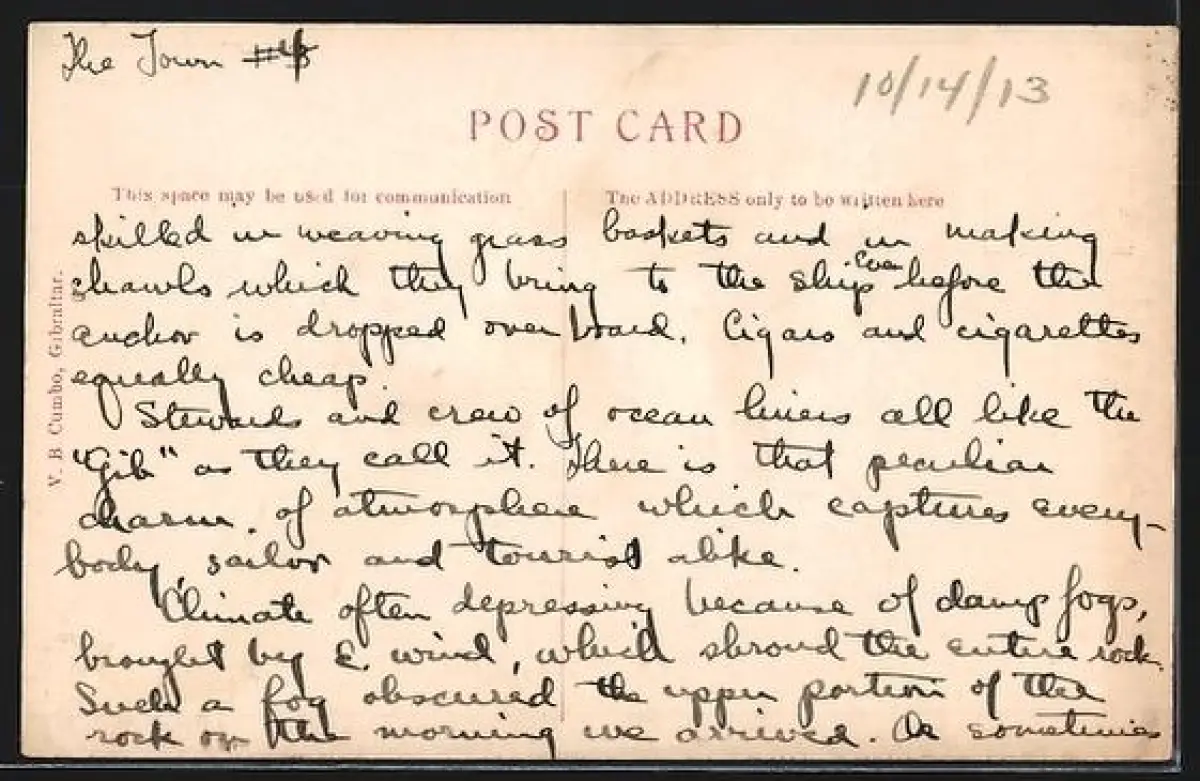 The Town #4
10/14/13
POST CARD
This space may be used for communication
The ADDRESS only to be written here
V. B. Cumbo, Gibraltar.
skilled in weaving grass baskets and in making
shawls which they bring to the ship even before the
anchor is dropped over board. Cigars and cigarettes
equally cheap.
Stewards and crew of ocean liners all like the
"Gib" as they call it. There is that peculiar
charm of atmosphere which captures every-
body, sailor and tourist alike.
Climate often depressing because of damp fogs,
brought by E. wind, which shroud the entire rock.
Such a fog obscured the upper portion of the
rock on the morning we arrived. Or sometimes